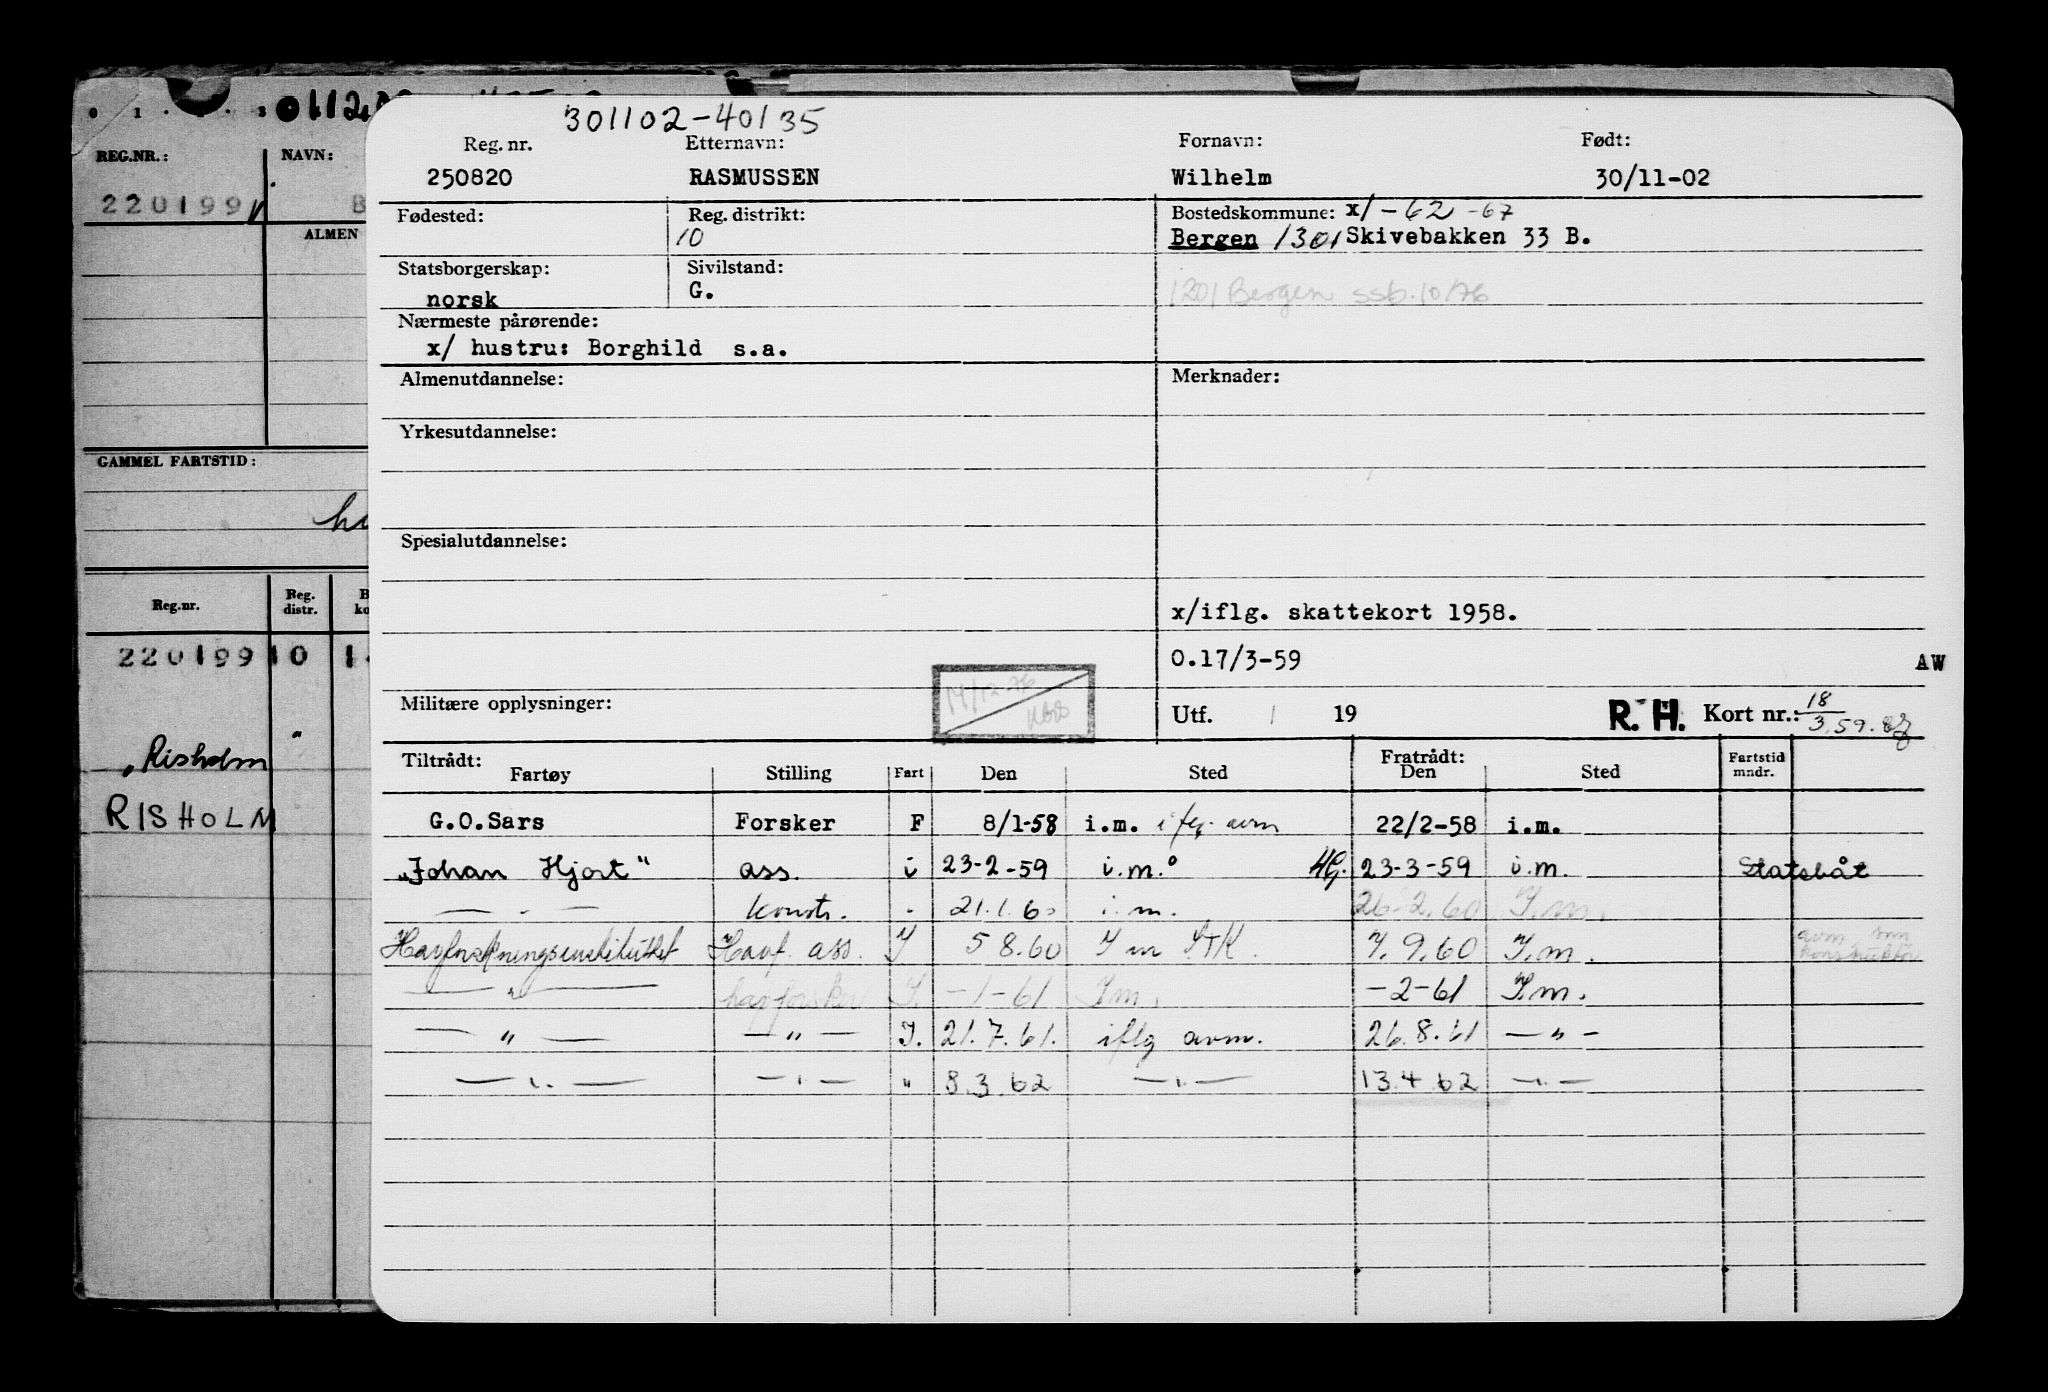 301102-40135
Reg. nr. Etternavn: Fornavn: Født:
250820 RASMUSSEN Wilhelm 30/11-02
Fødested: Reg. distrikt: Bostedskommune: x/ -62 -67
10 Bergen 1301 Skivebakken 33 B.
Statsborgerskap: Sivilstand:
norsk G. 1201 Bergen ssb. 10/76
Nærmeste pårørende:
x/ hustru: Borghild s.a.
Almenutdannelse: Merknader:
Yrkesutdannelse:
Spesialutdannelse:
x/iflg. skattekort 1958.
O.17/3-59 AW
Militære opplysninger: 14/12-76 Utf. 19 R. H. Kort nr.: 18/3.59.
Tiltrådt: Fratrådt:
Fartøy Stilling Fart Den Sted Den Sted Fartstid mndr.
G.O.Sars Forsker F 8/1-58 i.m. iflg. avm 22/2-58 i.m.
"Johan Hjort" ass. i 23-2-59 i.m. HG. 23-3-59 i.m. Statsbåt
— " — konstr. " 21.1.60 i.m. 26-2.60 I.m.
Havforskningsinstituttet Havf. ass. I 5 8.60 I m STK. 7.9.60 I.m. avm som konstruktør
— " — havforsker I. -1-61 I m. -2-61 I.m.
— " — — " — I. 21.7.61. iflg avm. 26.8.61 — " —
— " — — " — " 8.3.62 — " — 13.4.62 — " —
REG.NR.: NAVN:
220199
ALMEN
GAMMEL FARTSTID:
Reg.nr. Reg. distr.
220199 10
"Risholm "
RISHOLM